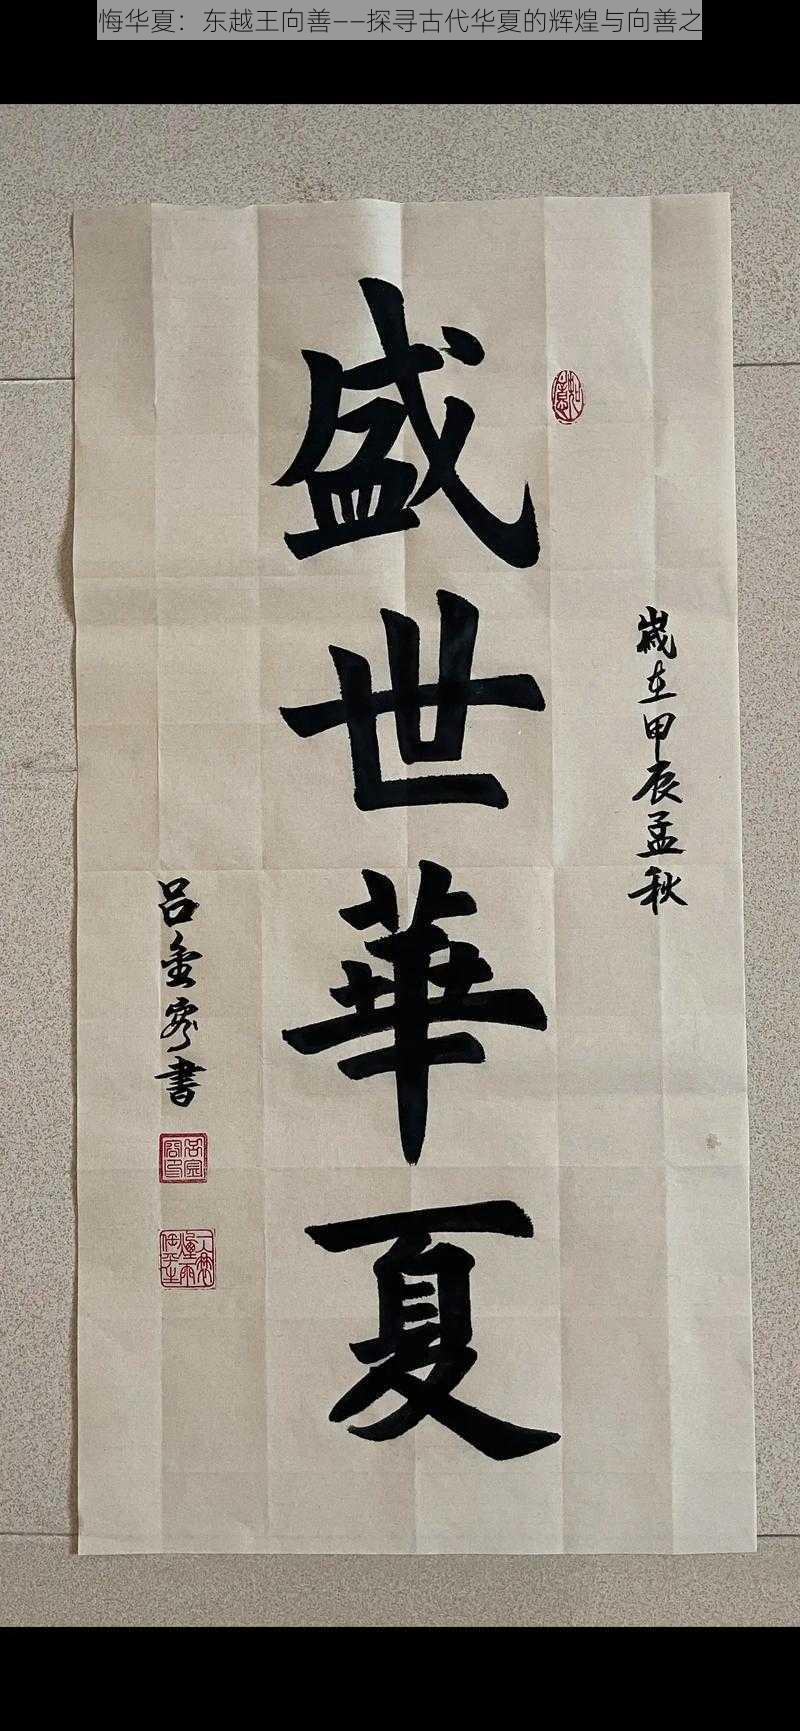 悔华夏：东越王向善——探寻古代华夏的辉煌与向善之
盛世華夏
歲在甲辰孟秋
吕金容書
如意